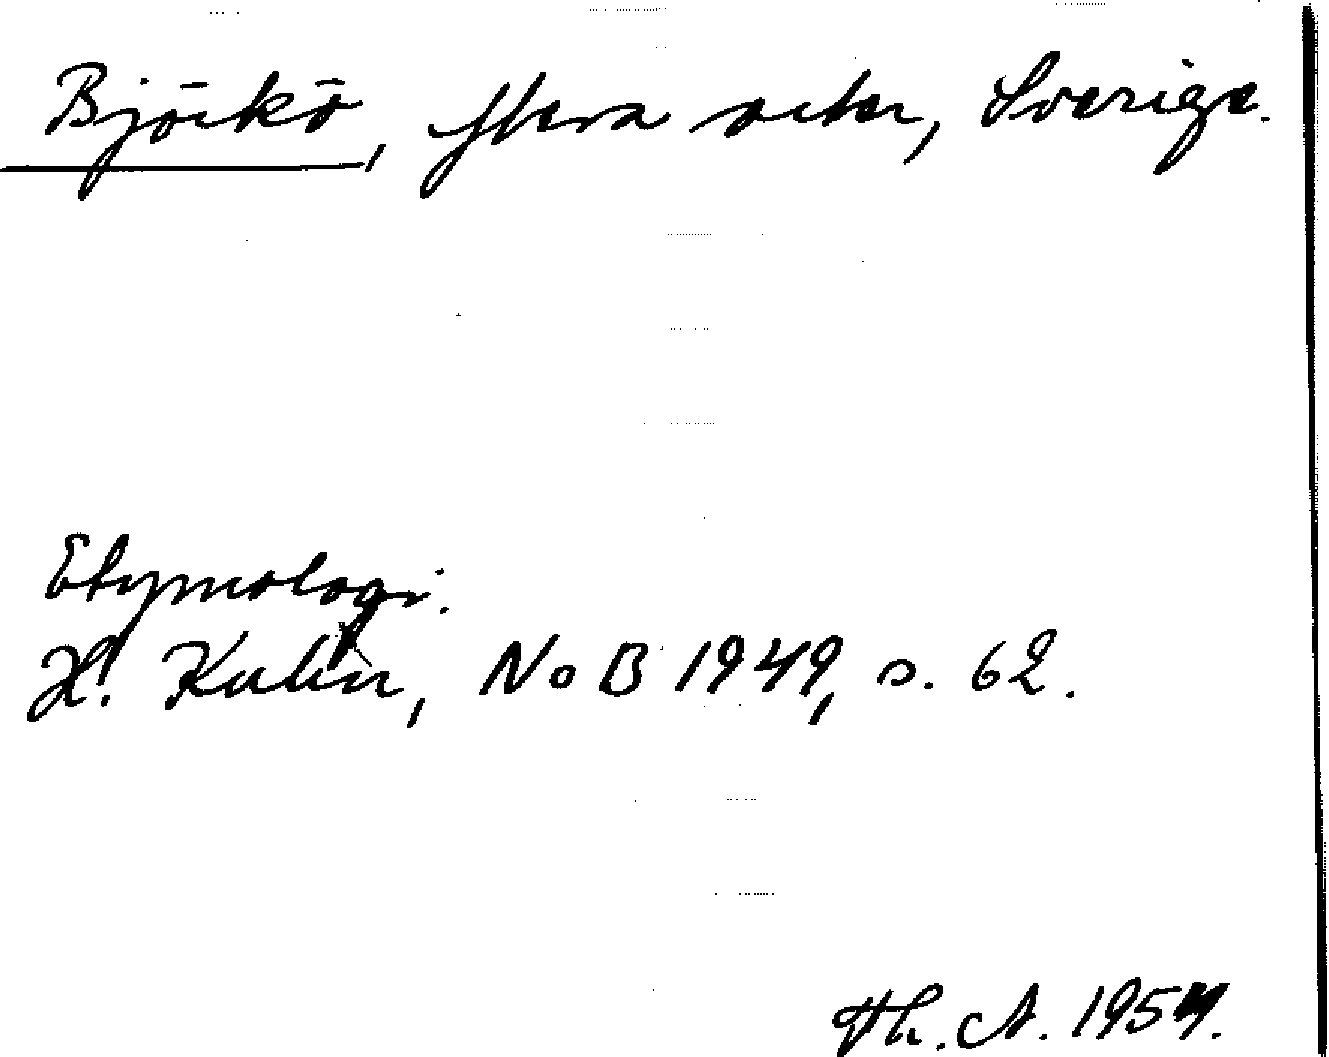 Björkö, flera orter, Sverige.
Etymologi.
H. Kuhn, NoB 1949, s. 62.
Th. A. 1954.